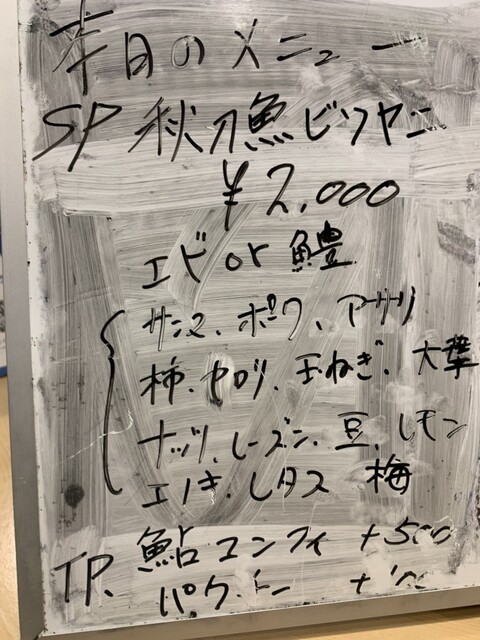 本日のメニュー
SP 秋刀魚ビリヤニ
¥2,000
エビ or 鱧
サンマ、ポーク、アサリ
柿、セロリ、玉ねぎ、大葉
ナッツ、レーズン、豆、レモン
エノキ、レタス 梅
TP. 鮎コンフィ +500